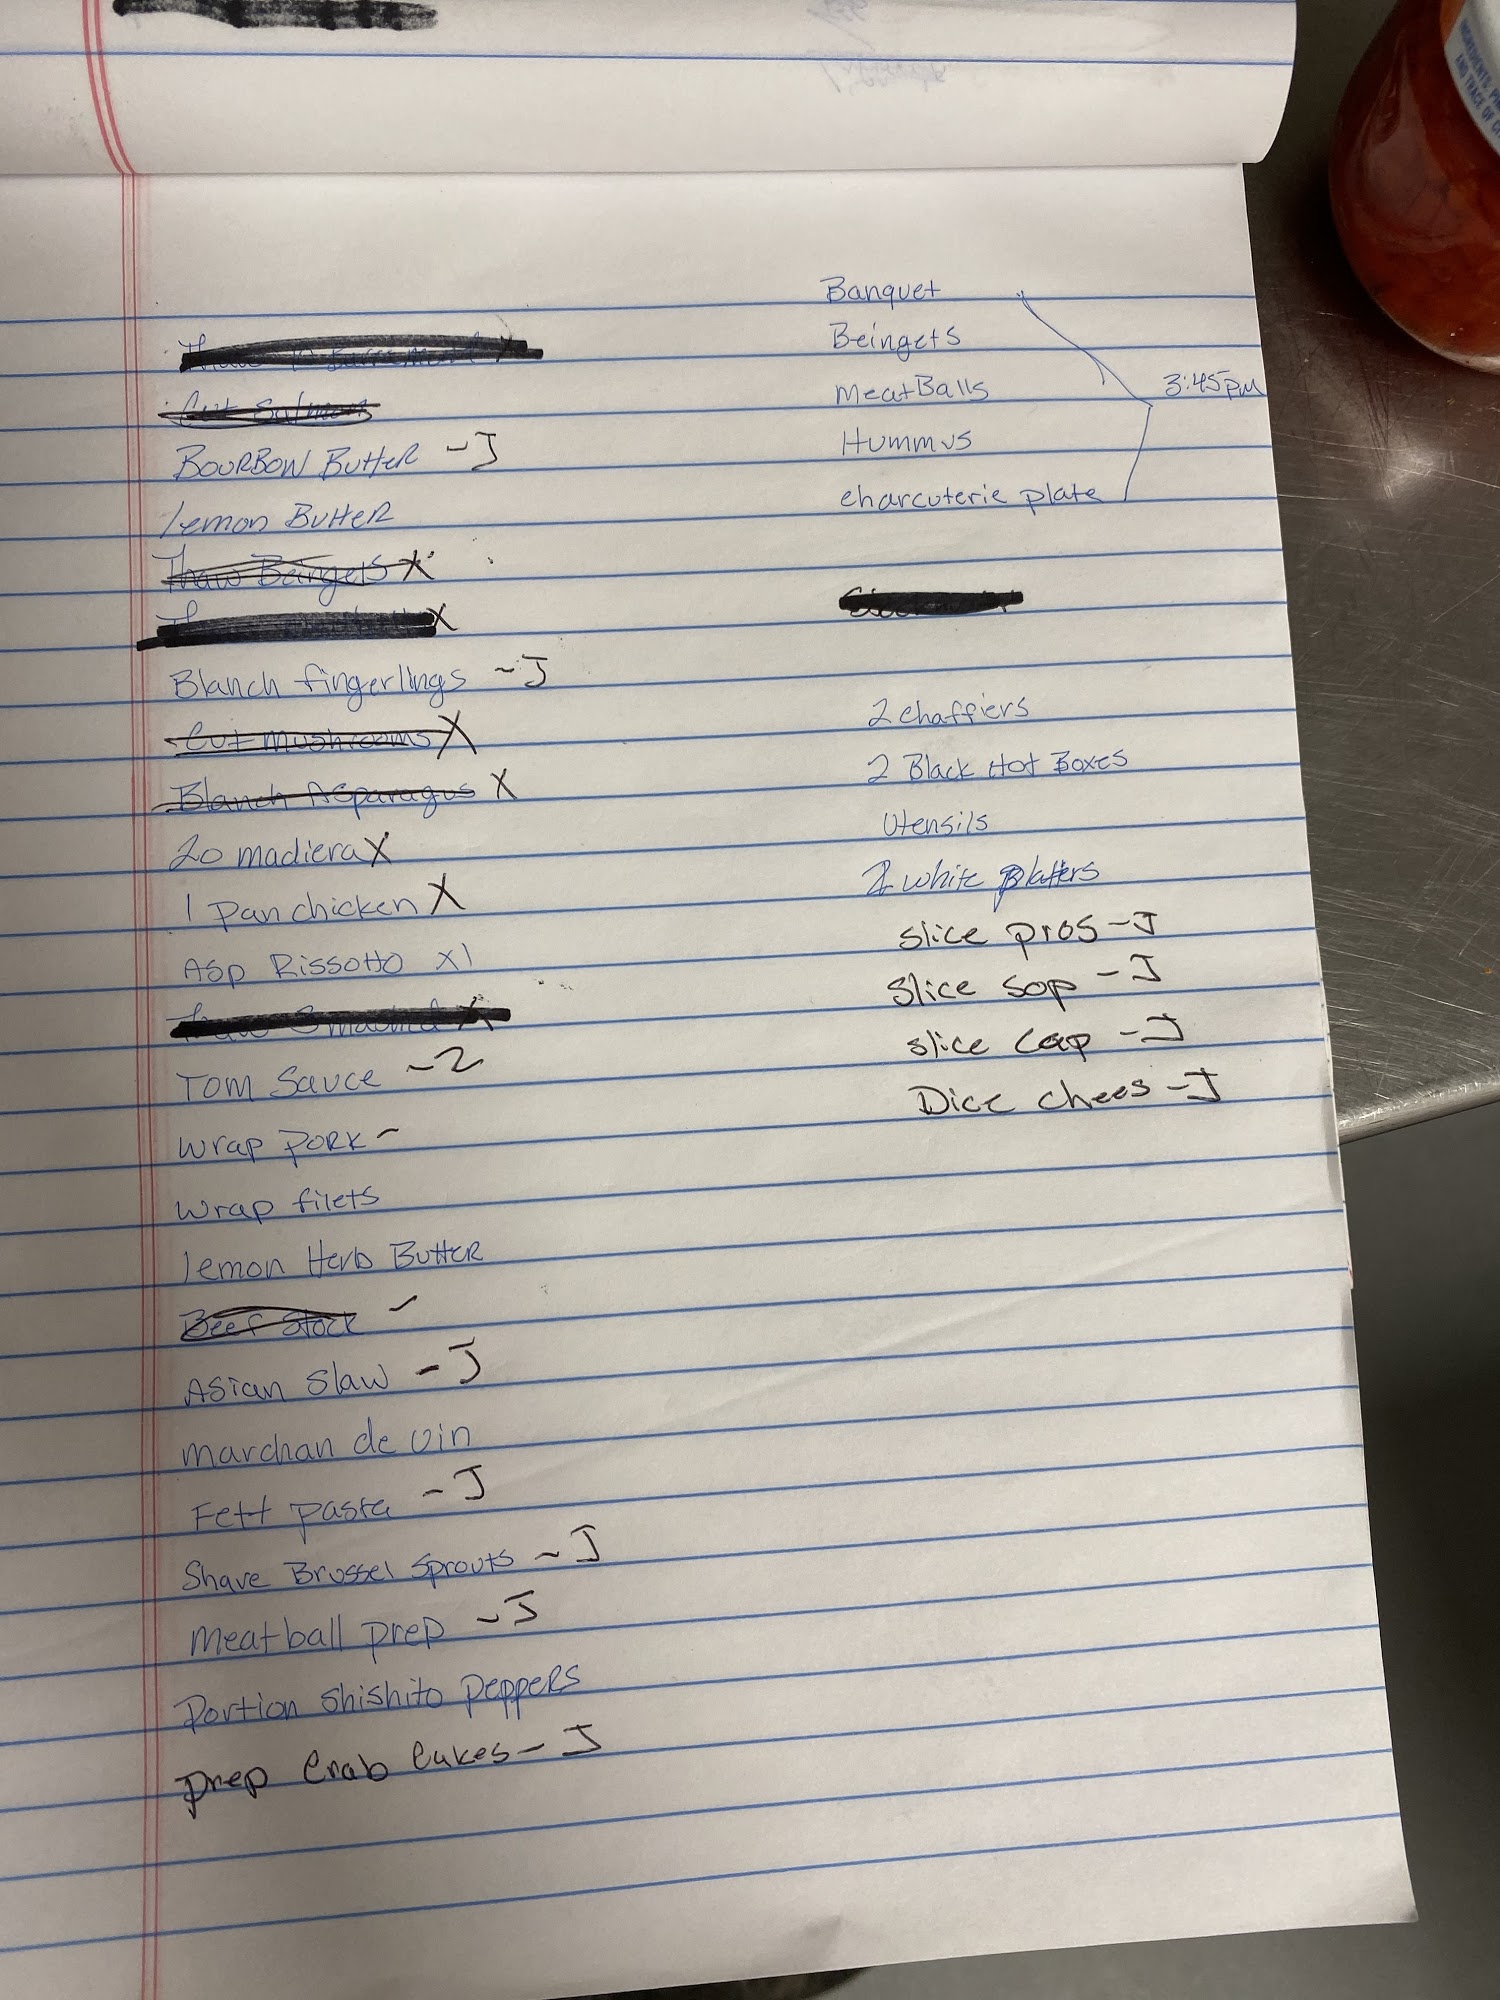 INGREDIENTS: 
AND TRACE OF
Thaw
Cut Salmon
BOURBON BUTTER - J
lemon BUTTER
Thaw Beingets X
X
Blanch fingerlings ~ J
Cut Mushrooms X
Blanch Asparagus X
20 madiera X
1 pan chicken X
Asp Rissotto x1
X
Tom Sauce - 2
wrap PORK -
wrap filets
lemon Herb Butter
Beef Stock -
Asian Slaw - J
marchan de vin
Fett pasta - J
Shave Brussel Sprouts ~ J
Meatball prep ~ J
Portion Shishito PeppeRs
prep Crab Cakes - J
Banquet
Beingets
MeatBalls
Hummus
charcuterie plate
3:45pm
2 chaffiers
2 Black Hot Boxes
Utensils
2 white platters
slice pros - J
Slice sop - J
slice cap - J
Dice chees - J